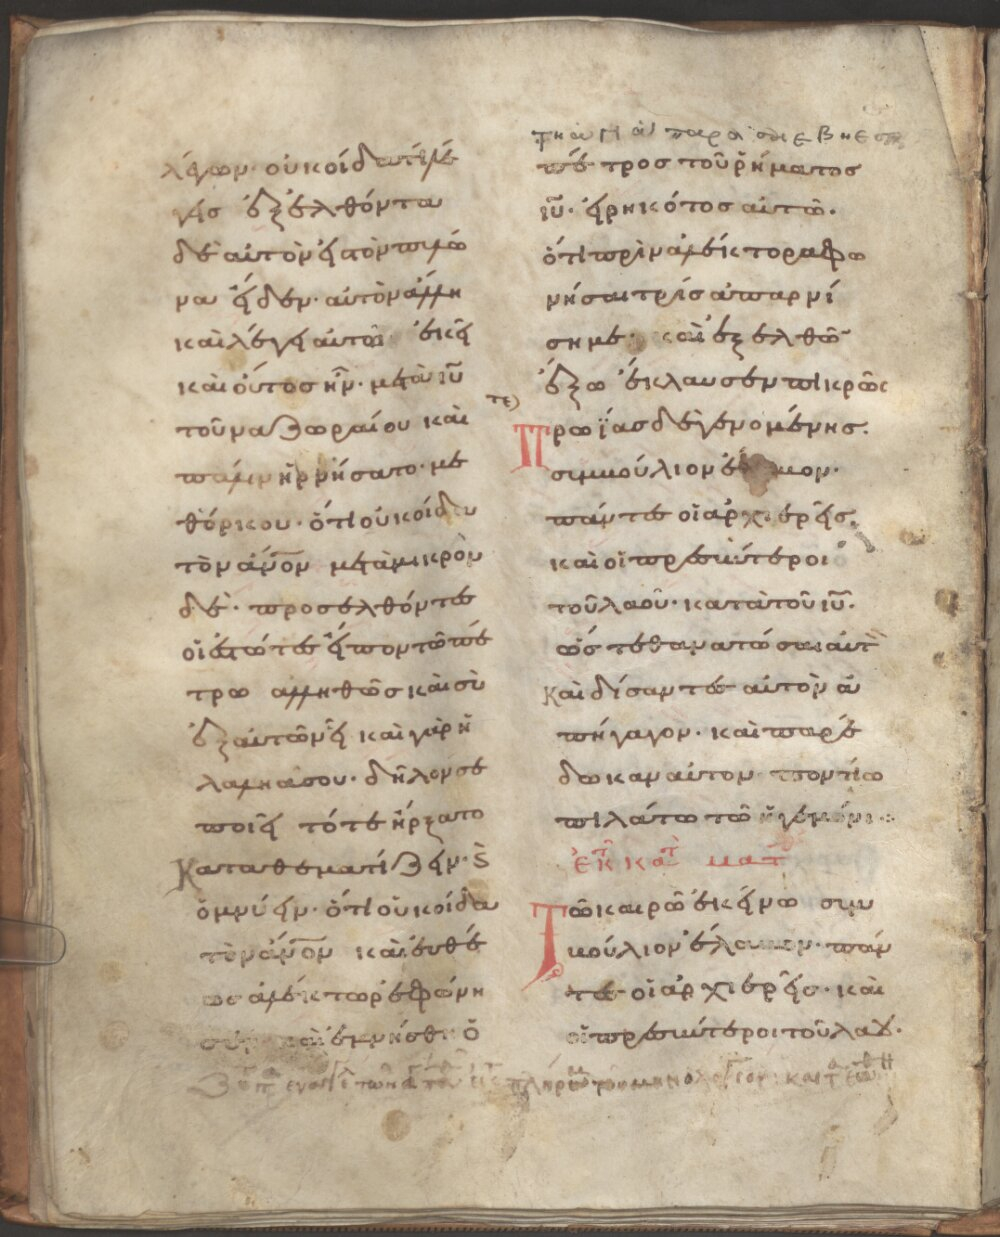 λέγων· οὐκ οἶδα τί λέ
γεισ ἐξελθόντα
δὲ αὐτὸν εἰς τὸν πυλῶ
να εἶδεν· αὐτὸν ἄλλη
καὶ λέγει αὐτοῖ ἐκεῖ
καὶ οὗτος ἦν· μετὰ ἰυ
τοῦ ναζωραίου καὶ
πάλιν ἠρνήσατο· με
θόρκου· ὅτι οὐκ οἶδα
τὸν ἄνον μετὰ μικρὸν
δὲ· προσελθόντεσ
οἱ ἑστώτεσ εἶπον τῶ πέ
τρω ἀλληθῶς καὶ σὺ
ἐξ αὐτῶν εἶ καὶ γὰρ ἡ
λαλιά σου· δῆλον σε
ποιεῖ τότε ἤρξατο
καταθεματίζειν· ϗ
ὀμνύειν· ὅτι οὐκ οἶδα
τὸν ἄνον καὶ εὐθέ
ως ἀλέκτωρ ἐφώνη
σεν καὶ ἐμνήσθη ὁ
πέτροσ τοῦ ῥήματοσ
ἰυ· εἰρηκότοσ αὐτῶ·
ὅτι πρὶν ἀλέκτορα φω
νῆσαι τρίσ ἀπαρνί
σημε· καὶ ἐξελθῶ
ἔξω ἔκλαυσεν πικρῶς
Πρωΐασ δὲ γενομένησ·
συμβούλιον ἔλαβον·
πάντεσ οἱ ἀρχιερεῖσ·
καὶ οἱ πρεσβύτεροι
τοῦ λαοῦ· κατὰ τοῦ ἰυ·
ὥστε θανατῶσαι αὐτ
καὶ δίσαντεσ αὐτὸν ἀ
πήγαγον· καὶ παρέ
δωκαν αὐτον ποντίω
πιλάτω τῶ ἡγεμόνι
ἐκ κατ ματ
Τῶ καιρῶ ἐκείνω συμ
βούλιον ἔλαβον· πάν
τεσ οἱ ἀρχιερεῖσ· καὶ
οἱ πρεσβύτεροι τοῦ λαου·